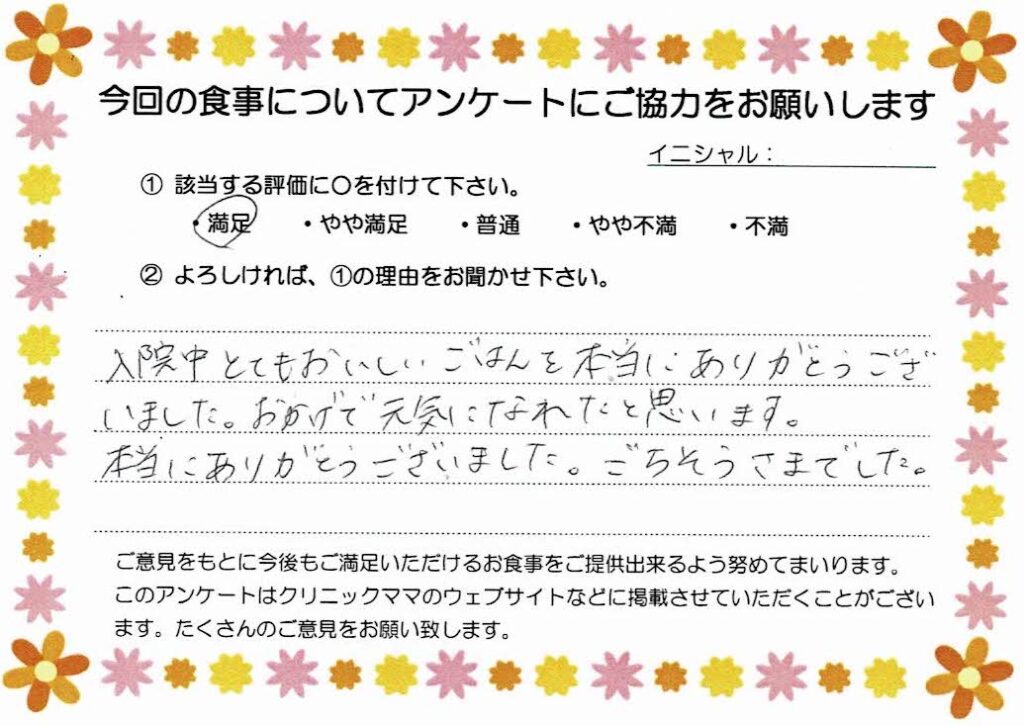 今回の食事についてアンケートにご協力をお願いします
イニシャル：
① 該当する評価に〇を付けて下さい。
・満足 ・やや満足 ・普通 ・やや不満 ・不満
② よろしければ、①の理由をお聞かせ下さい。
入院中とてもおいしいごはんを本当にありがとうござ
いました。おかげで元気になれたと思います。
本当にありがとうございました。ごちそうさまでした。
ご意見をもとに今後もご満足いただけるお食事をご提供出来るよう努めてまいります。
このアンケートはクリニックママのウェブサイトなどに掲載させていただくことがござい
ます。たくさんのご意見をお願い致します。